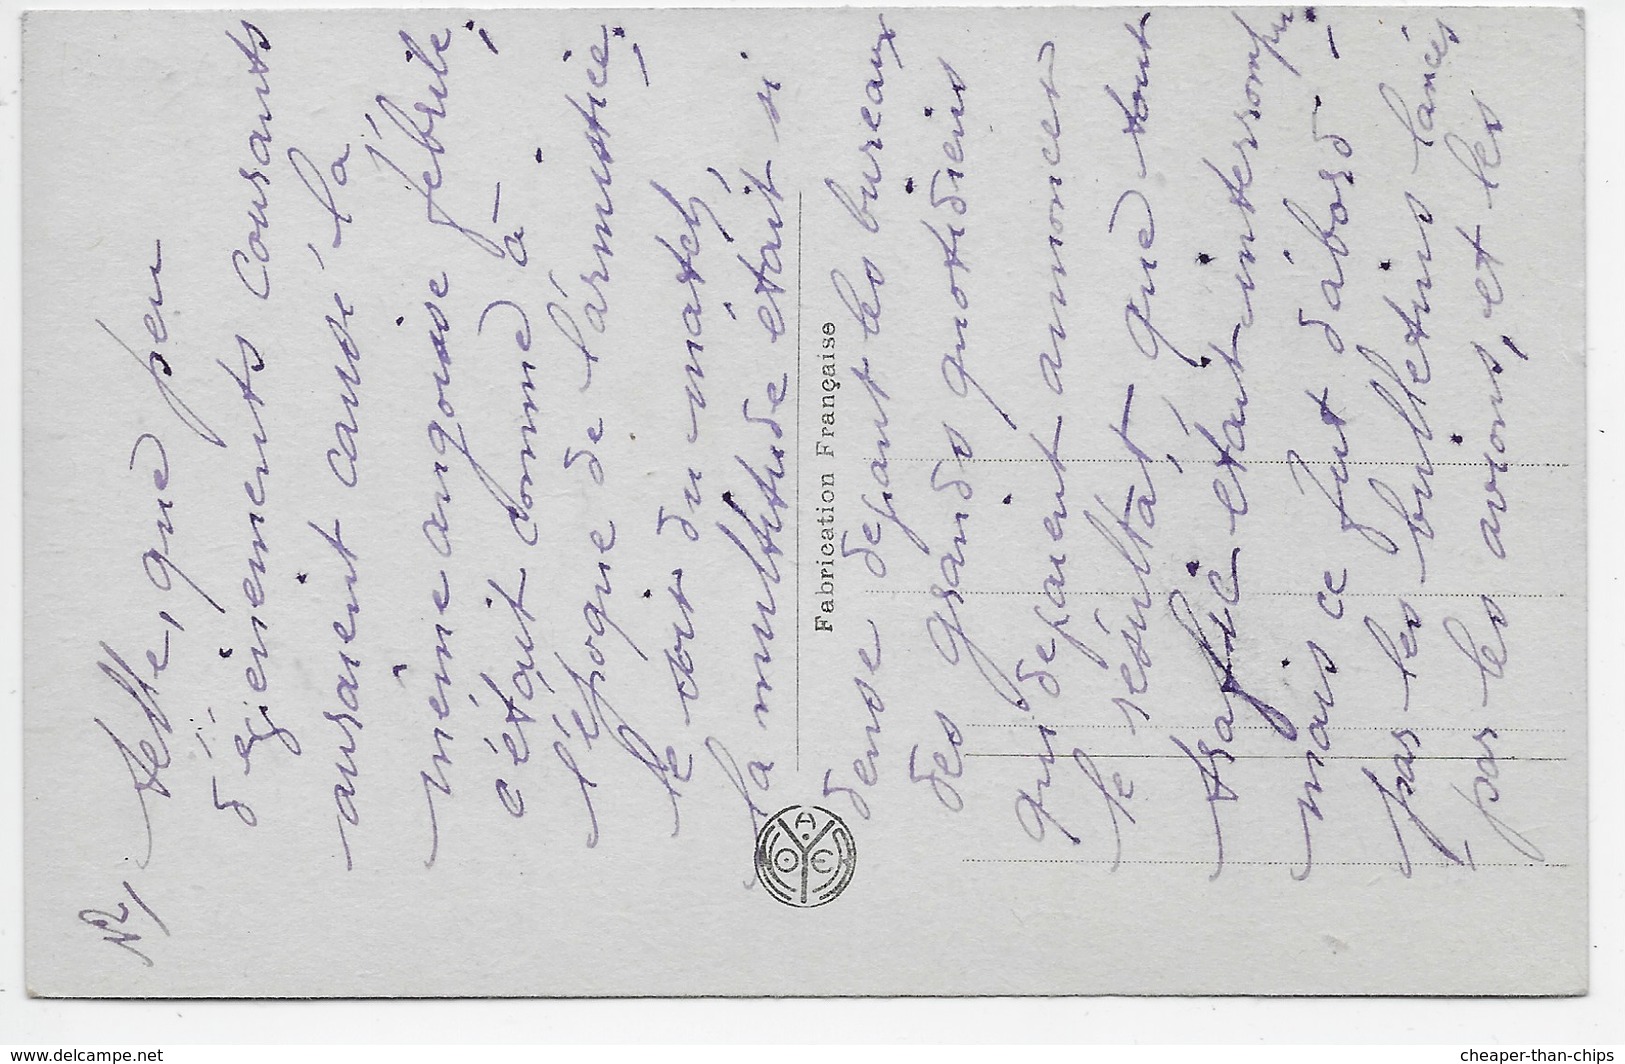 N° 2,
telle, que peu
d'événements courants
auraient causé la
même angoisse fébrile ;
c'était comme à
l'époque de l'armistice ;
le soir du match,
la multitude était si
dense devant les bureaux
des grands quotidiens
qui devaient annoncer
le résultat, que tout
trafic était interrompu ;
mais ce fut d'abord -
par les bulletins lancés
par les avions, et les
Fabrication Française
www.delcampe.net
cheaper-than-chips